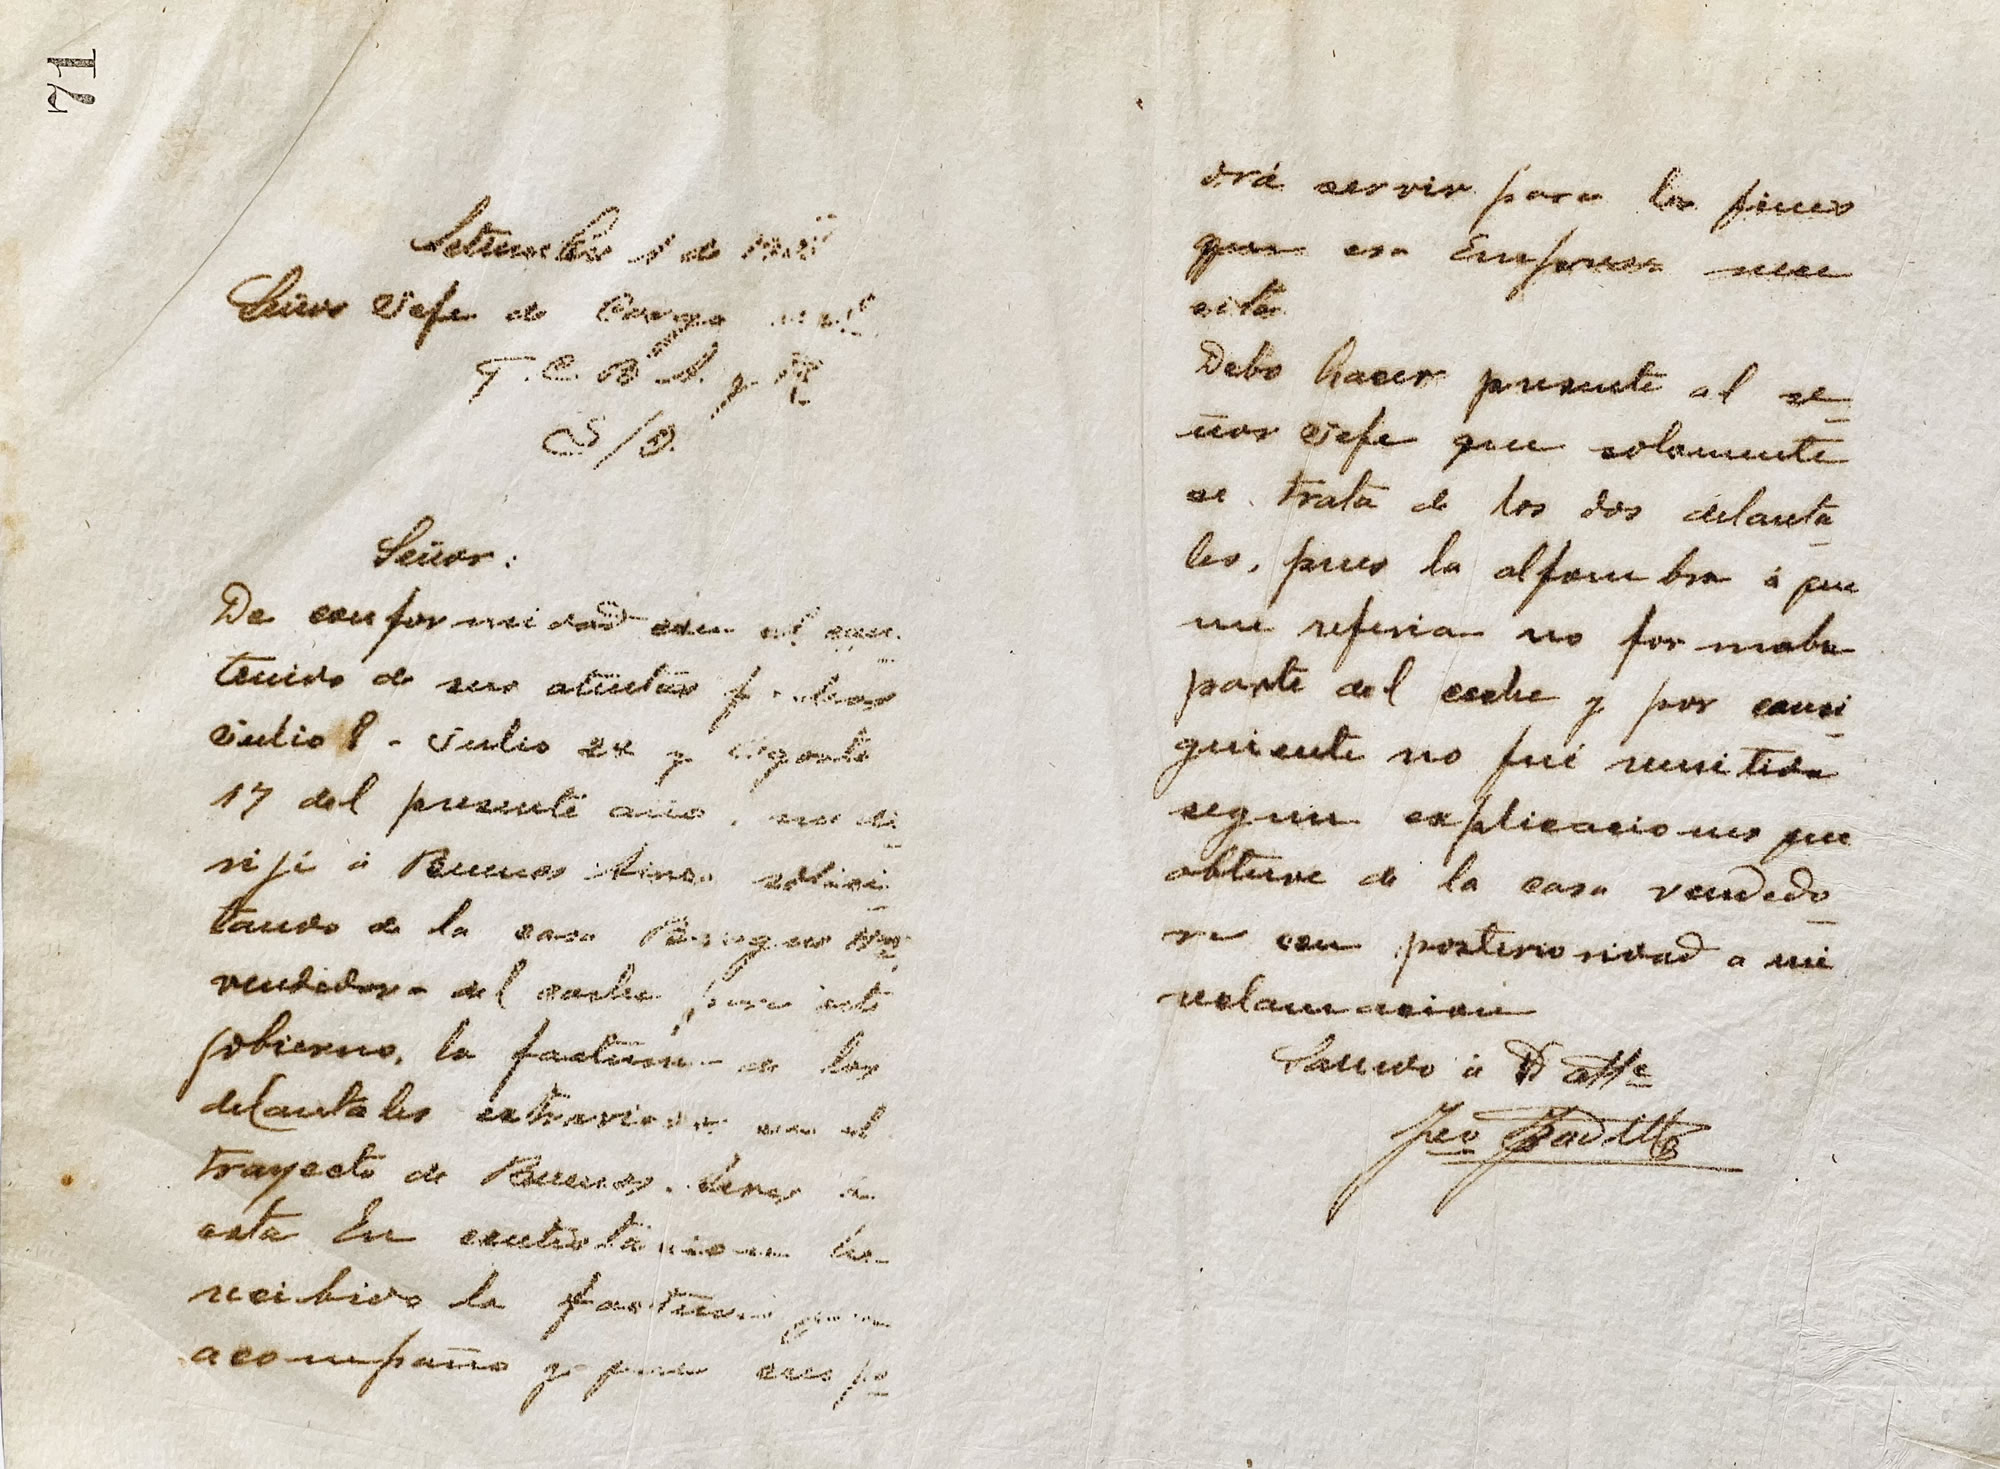 71
Setiembre 1 de
Señor Jefe de Carga
F. C. B. A. y P.
S/D.
Señor:
De conformidad con el con
tenido de sus atentas fechas
Julio 8 - Julio 24 y Agosto
17 del presente año, me di
rijí á Buenos Aires solici
tando de la casa
vendedora del coche para este
gobierno, la factura de los
delantales extraviados en el
trayecto de Buenos Aires á
esta En contestacion he
recibido la factura que
acompaño y que creo po
drá servir para los fines
que esa Empresa nece
sita
Debo hacer presente al se
ñor Jefe que solamente
se trata de los dos delanta
les, pues la alfombra á que
me referia no formaba
parte del coche y por consi
guiente no fué remitida
segun explicaciones que
obtuve de la casa vendedo
ra con posterioridad a mi
reclamacion
Saludo á Vd atte